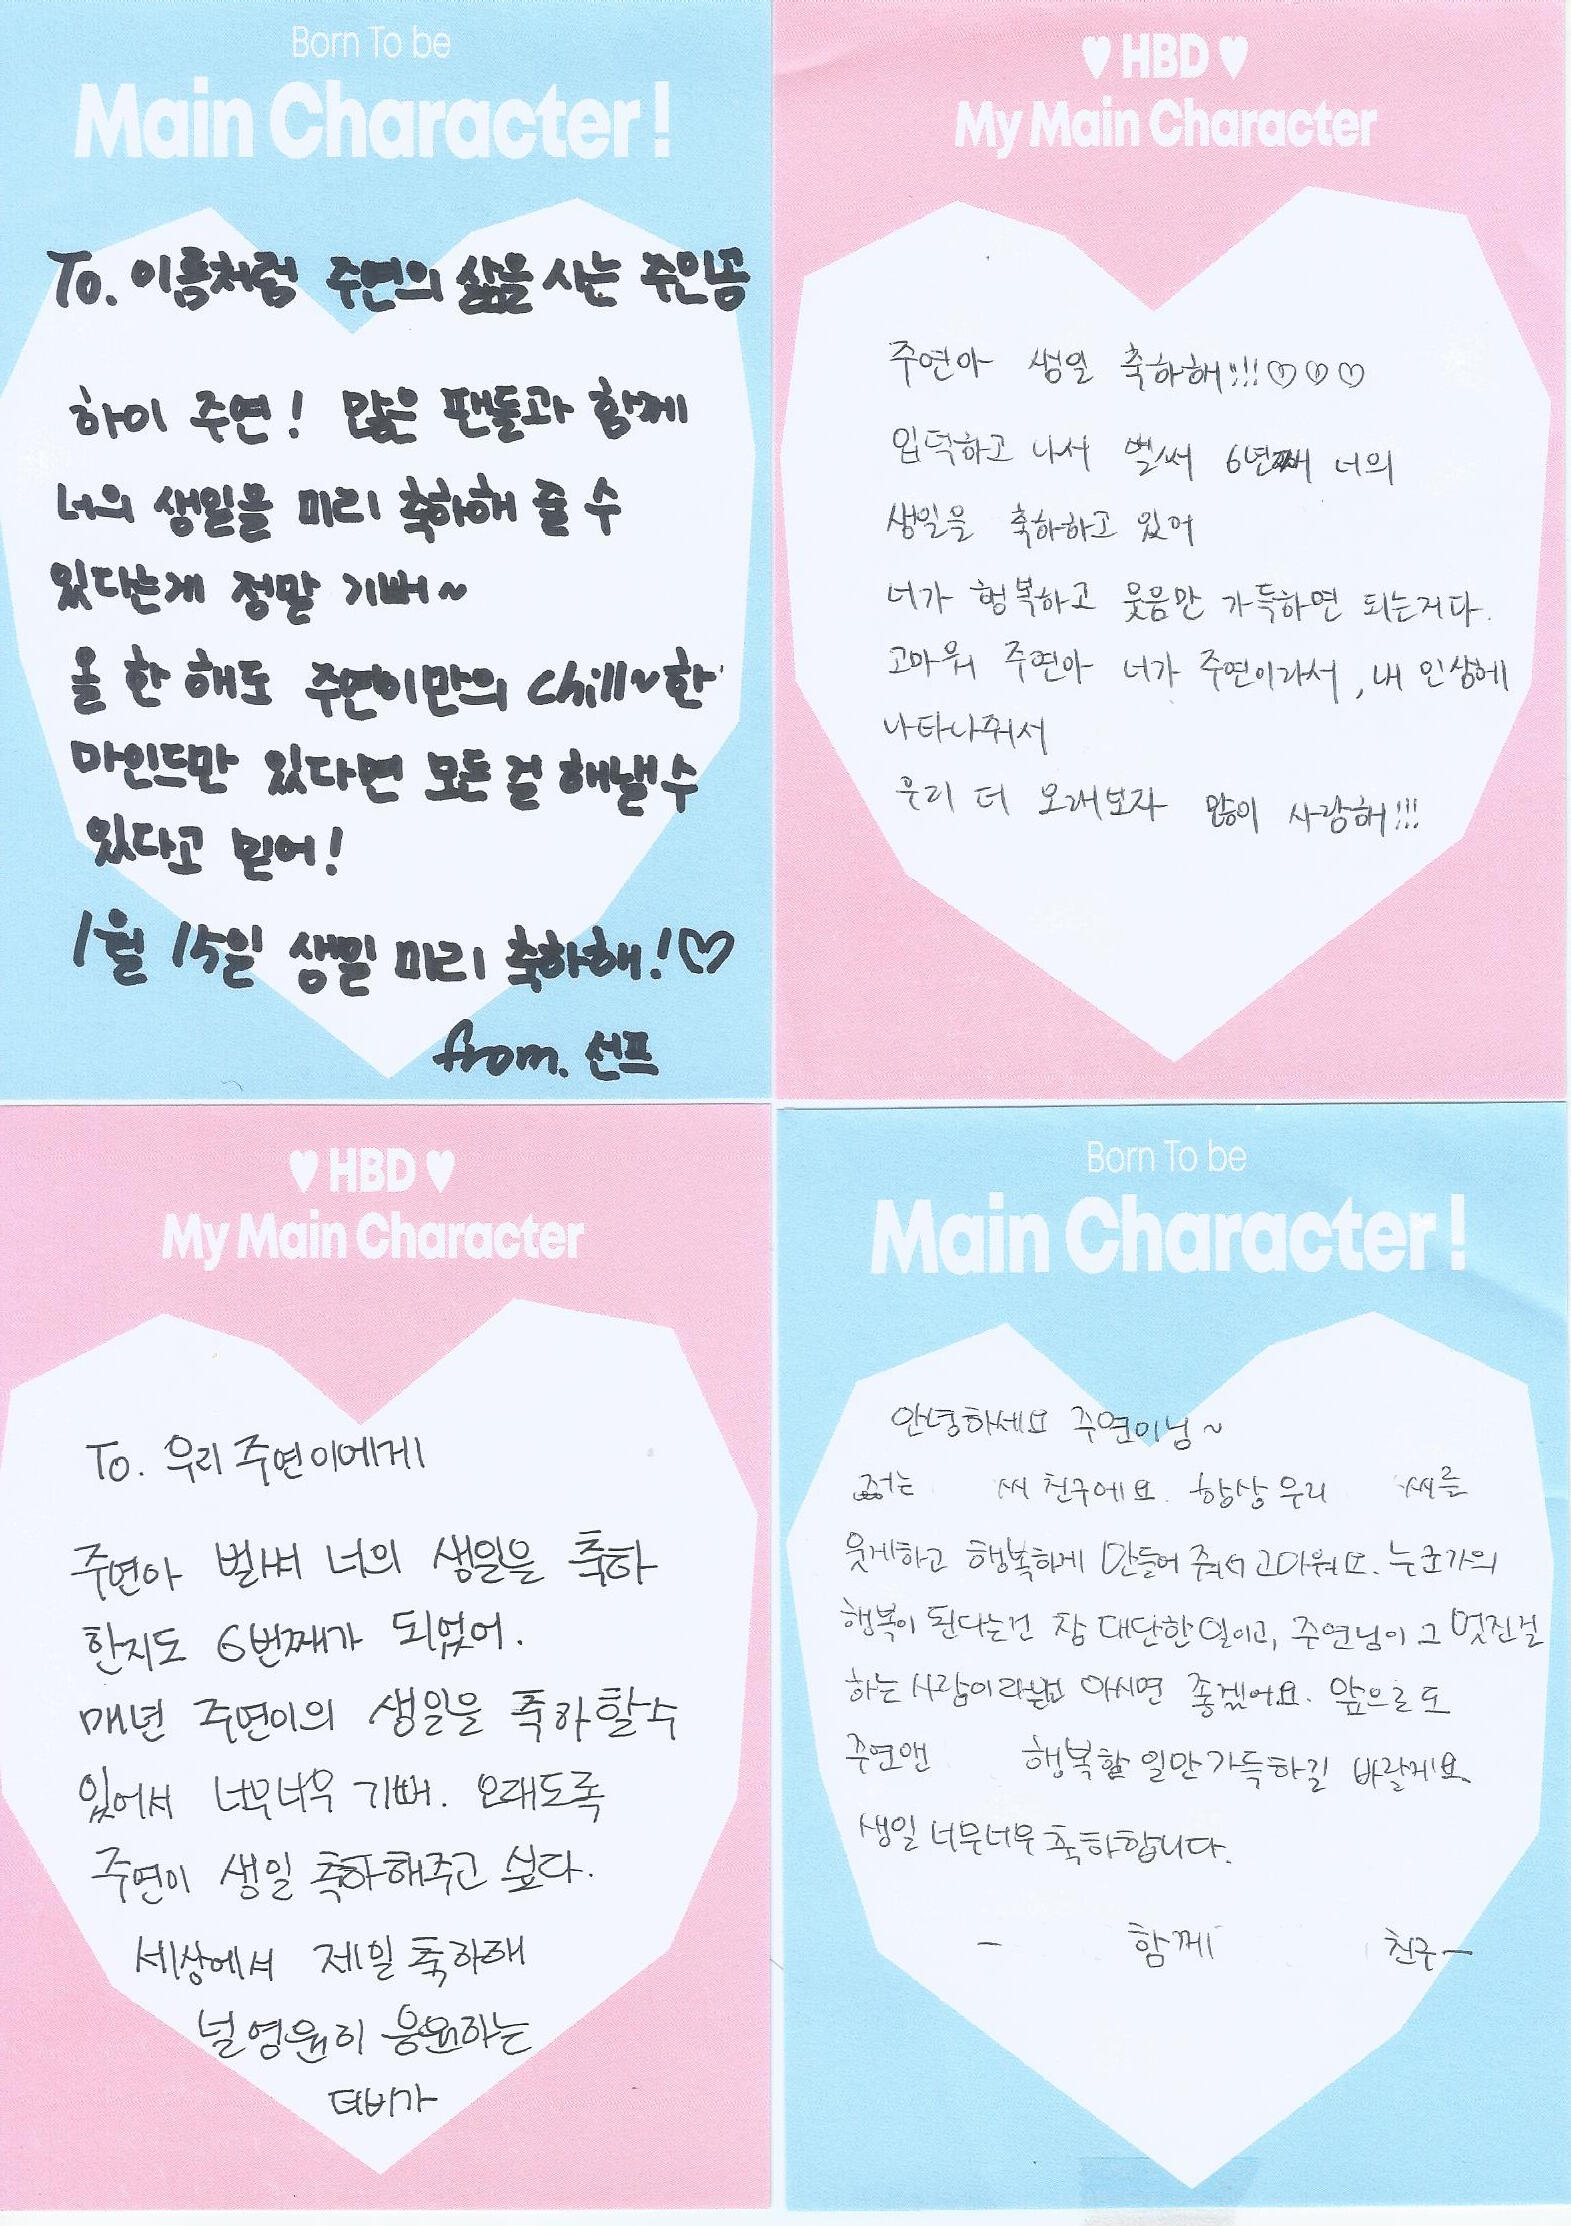 Born To be
Main Character!
To. 이름처럼 주연의 삶을 사는 주인공
하이 주연! 많은 팬들과 함께
너의 생일을 미리 축하해 줄 수
있다는게 정말 기뻐~
올 한 해도 주연이만의 chill~한
마인드만 있다면 모든 걸 해낼 수
있다고 믿어!
1월 15일 생일 미리 축하해!♡
from. 선프
♥ HBD ♥
My Main Character
주연아 생일 축하해!!!♡♡♡
입덕하고 나서 벌써 6년째 너의
생일을 축하하고 있어
너가 행복하고 웃음만 가득하면 되는거다.
고마워 주연아 너가 주연이라서, 내 인생에
나타나줘서
우리 더 오래보자 많이 사랑해!!!
♥ HBD ♥
My Main Character
To. 우리 주연이에게
주연아 벌써 너의 생일을 축하
한지도 6번째가 되었어.
매년 주연이의 생일을 축하할수
있어서 너무너무 기뻐. 오래도록
주연이 생일 축하해주고 싶다.
세상에서 제일 축하해
널 영원히 응원하는
더비가
Born To be
Main Character!
안녕하세요 주연이님~
저는 씨 친구에요. 항상 우리 씨를
웃게하고 행복하게 만들어 줘서 고마워요. 누군가의
행복이 된다는건 참 대단한 일이고, 주연님이 그 멋진걸
하는 사람이라는걸 아시면 좋겠어요. 앞으로도
주연앤 행복할 일만 가득하길 바랄게요.
생일 너무너무 축하합니다.
- 함께 친구-